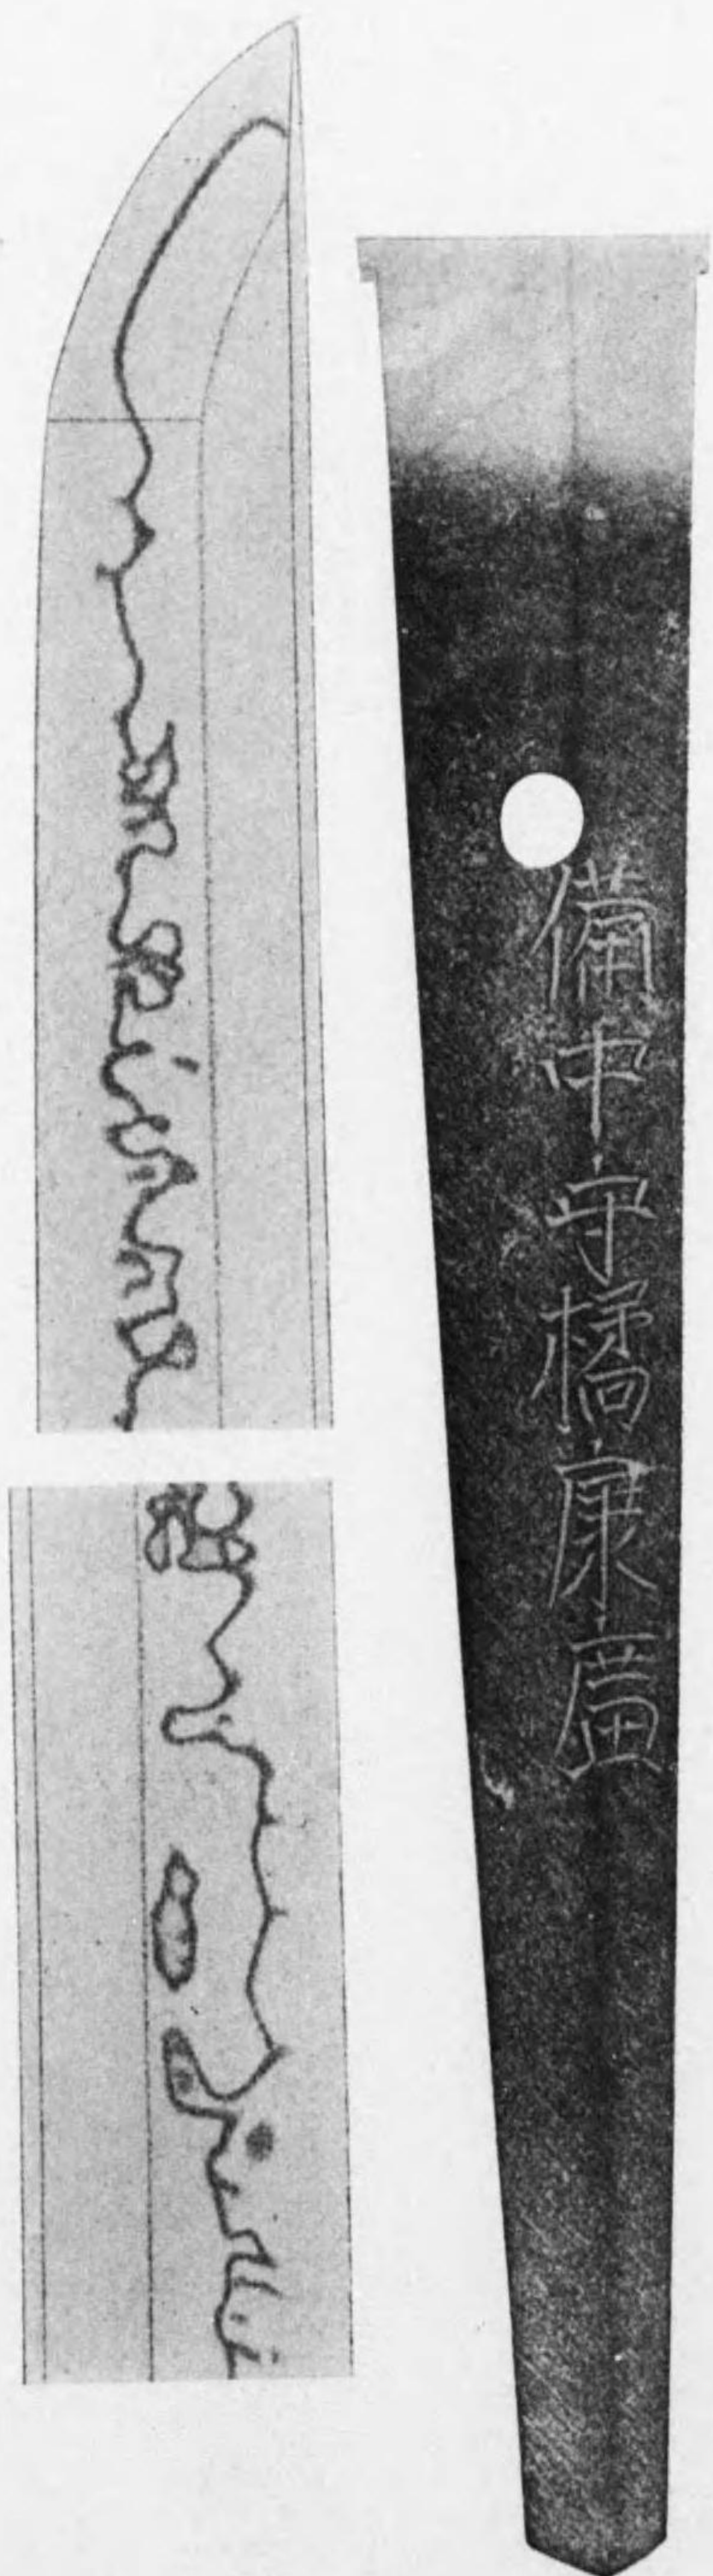 備中守橘康廣